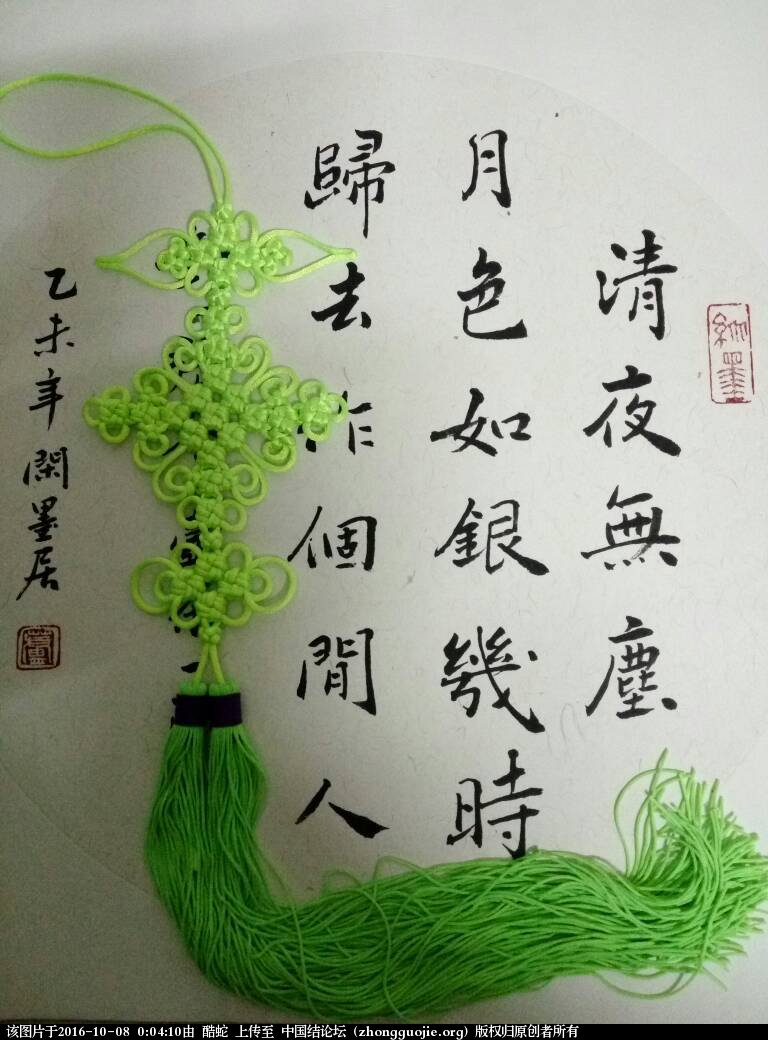 清夜無塵
月色如銀幾時
歸去作個閒人
乙未年閑墨居
该图片于2016-10-08 0:04:10由 酷蛇 上传至 中国结论坛 (zhongguojie.org) 版权归原创者所有